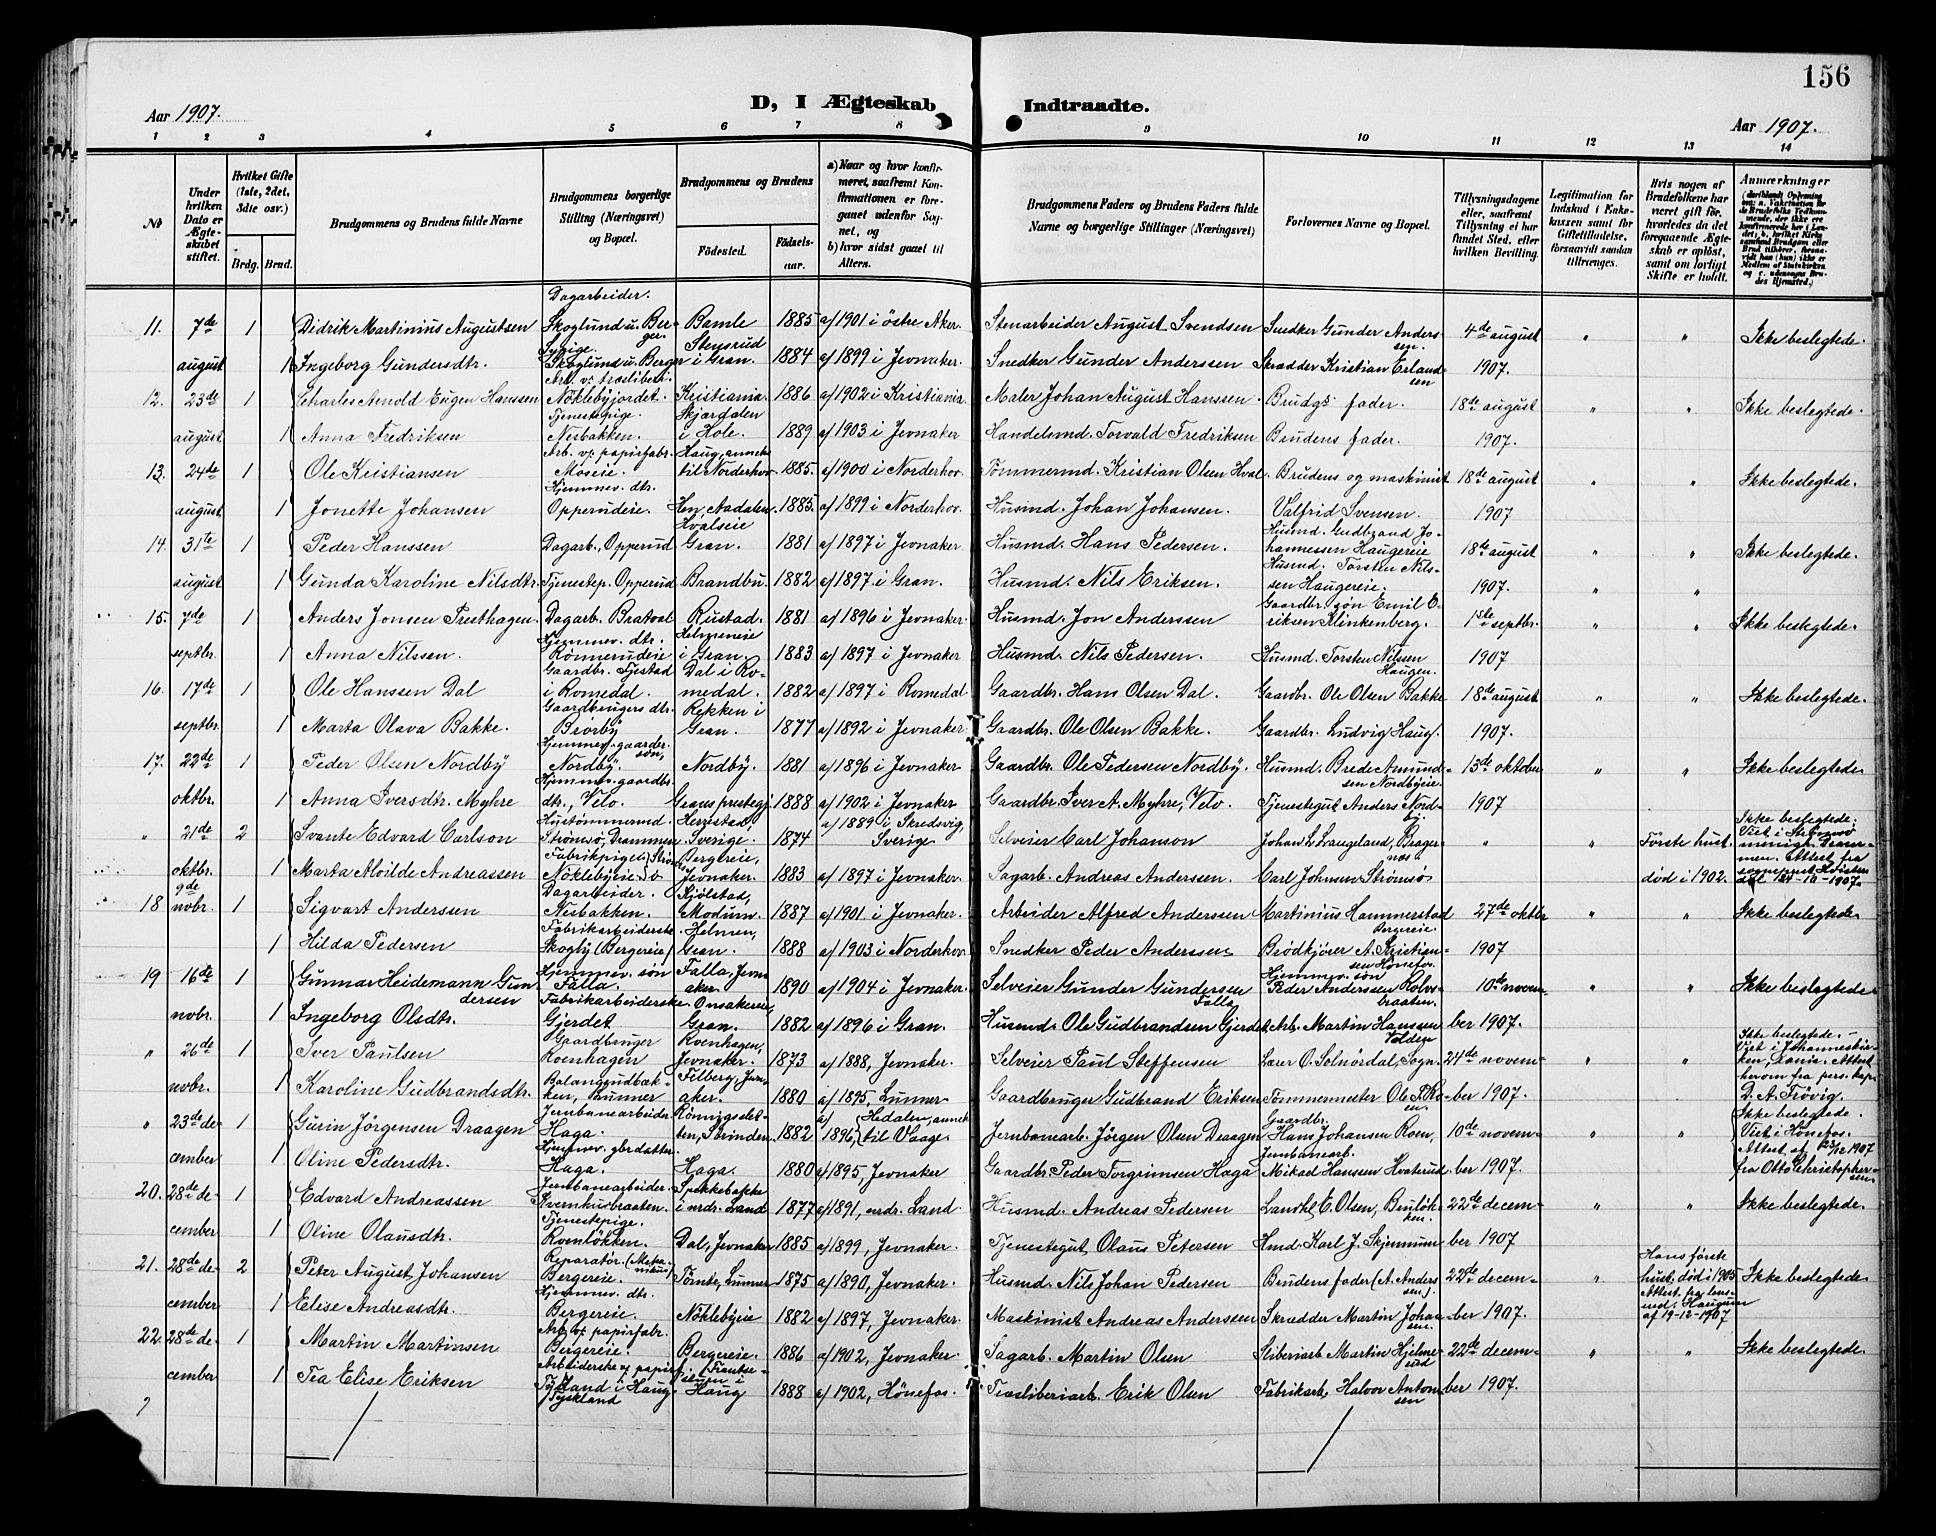 156
D, I Ægteskab Indtraadte.
Aar 1907.
Aar 1907.
1 2 3 4 5 6 7 8 9 10 11 12 13 14
No
Under hvilken Dato er Ægteskabet stiftet.
Hvilket Gifte (1ste, 2det, 3die osv.)
Brdg. Brud.
Brudgommens og Brudens fulde Navne
Brudgommens borgerlige Stilling (Næringsvei) og Bopæl.
Brudgommens og Brudens
Födested.
Födselsaar.
a) Naar og hvor konfirmeret, saafremt Konfirmationen er foregaaet udenfor Sognet, og
b) hvor sidst gaaet til Alters.
Brudgommens Faders og Brudens Faders fulde Navne og borgerlige Stillinger (Næringsvei)
Forlovernes Navne og Bopæl.
Tillysningsdagene eller, saafremt Tillysning ei har fundet Sted, efter hvilken Bevilling.
Legitimation for Indskud i Enkekassen samt for Giftetilladelse, forsaavidt saadan tiltrænges.
Hvis nogen af Brudefolkene har været gift för, hvorledes da det foregaaende Ægteskab er oplöst, samt om lovligt Skifte er holdt.
Anmærkninger
11. 7de august 1 Didrik Martinius Augustsen Dagarbeider. Skoglund u. Berger. Bamle 1885 a/1901 i östre Aker. Stenarbeider August Svendsen Snedker Gunder Anderssen. 4de august " " Ikke beslegtede.
1 Ingeborg Gundersdtr. Skoglund u. Berger Stensrud i Gran. 1884 a/1899 i Jevnaker. Snedker Gunder Anderssen Skrædder Kristian Erlandsen 1907.
12. 23de august 1 Charles Arnold Eugen Hanssen Arb. v. træsliberi. Nöklebyjordet. Kristiania. 1886 a/1902 i Kristiania. Maler Johan August Hanssen. Brudgs fader. 18de august " " Ikke beslegtede.
1 Anna Fredriksen Tjenestepige. Nesbakken. Skjærdalen i Hole. 1889 a/1903 i Jevnaker Handelsmd. Torvald Fredriksen Brudens fader. 1907.
13. 24de august 1 Ole Kristiansen Arb. v. papirfabr. Moseie. Haug, anneks til Norderhov. 1885. a/1900 i Norderhov. Tömmermd. Kristian Olsen Hval. Brudens og maskinist 18de august " " Ikke beslegtede.
1 Jonette Johansen Hjemmev. dtr. Opperudeie. Hen, Aadalen. 1885. a/1899 i Norderhov. Husmd. Johan Johansen. Valfrid Svensen. 1907
14. 31te august 1 Peder Hanssen Dagarb., Opperud Hvalseie Gran. 1881 a/1897 i Jevnaker. Husmd. Hans Pedersen. Husmd. Gudbrand Johannessen Haugereie 18de august " " Ikke beslegtede.
1 Gunda Karoline Nilsdtr. Tjenestep. Opperud Brandbu. 1882 a/1897 i Gran. Husmd. Nils Eriksen. Husmd. Torsten Nilssen Haugereie. 1907. " "
15. 7de septbr. 1 Anders Jonsen Presthagen. Dagarb. Bratval Rustad. 1881 a/1896 i Jevnaker. Husmd. Jon Anderssen Gaardbr. sön Emil Eriksen Klinkenberg. 1ste septbr. " " Ikke beslegtede.
1 Anna Nilssen. Hjemmev. dtr. Rönnerudeie Helmeneie i Gran. 1883 a/1897 i Jevnaker Husmd. Nils Pedersen. Husmd. Torsten Nilssen Haugen. 1907
16. 17de septbr. 1 Ole Hanssen Dal Gaardbr. Tjestad i Romedal. Dal i Romedal. 1882 a/1897 i Romedal Gaardbr. Hans Olsen Dal. Gaardbr. Ole Olsen Bakke 18de august Ikke beslegtede.
1 Marta Olava Bakke. Gaardbrugers dtr. Brörby Rekken i Gran. 1877 a/1892 i Jevnaker Gaardbr. Ole Olsen Bakke. Gaardbr. Ludvig Haug. 1907.
17. 22de oktbr. 1 Peder Olsen Nordby Hjemmev. gaardersön, Nordby. Nordby. 1881 a/1896 i Jevnaker Gaardbr. Ole Pedersen Nordby. Husmd. Brede Amundsen Nordbyeie. 13de oktober " " Ikke beslegtede
1 Anna Iversdtr. Myhre Hjemmev. gaardbr. dtr., Velo. Grans prestegj. 1888 a/1902 i Jevnaker Gaardbr. Iver A. Myhre, Velo. Tjenestegut Anders Nordby. 1907
" 21de oktbr. 2 Svante Edvard Carlson Hustömmermd. Strömsö, Drammen Herrestad, Sverige. 1874 a/1889 i Skredsvig, Sverige Selveier Carl Johanson Johan L. Langeland, Bragernes " " Förste hust. död i 1902. Ikke beslegtede. Viet i Strömsö menigh. Drammen. Attest fra
1 Marta Alvilde Andreassen Fabrikpige Nöklebyeie. Bergereie, Jevnaker. 1883 a/1897 i Jevnaker. Sagarb. Andreas Anderssen. Carl Johnsen Strömsö
18 9de novbr. 1 Sigvart Anderssen Dagarbeider. Nesbakken. Kjölstad, Modum. 1887 a/1901 i Jevnaker. Arbeider Alfred Anderssen Martinius Hammerstad Bergereie. 27de oktbr " " Ikke beslegtede
1 Hilda Pedersen Fabrikarbeiderske. Skogly (Bergereie) Helmen, Gran. 1888 a/1903 i Norderhov. Snedker Peder Anderssen Brödkjörer A. Kristiansen Hönefos. 1907
19 16de novbr. 1 Gunnar Heidemann Gundersen Hjemmev. sön Falla. Falla, Jevnaker. 1890 a/1904 i Jevnaker. Selveier Gunder Gundersen Falla Hjemmev. sön Peder Anderssen Rolvsbraaten. 10de novem- " " Ikke beslegtede
1 Ingeborg Olsdtr. Fabrikarbeiderske. Gjerdet Onsakereie, Gran. 1882 a/1896 i Gran. Husmd. Ole Gudbrandsen Gjerdet. Arb. Martin Hanssen Velden ber 1907.
" 26de novbr. 1 Iver Paulsen Gaardbruger Roenhagen Roenhagen, Jevnaker. 1873 a/1888, Jevnaker. Selveier Paul Steffensen Lærer O. Solnördal, Sogn. 24de novem- " " Ikke beslegtede. Viet i Johanneskirken, Krania. Attest herom fra pers. kap. D. A. Frövig.
1 Karoline Gudbrandsdtr. Balangrudbækken, Lunner Filberg, Jevnaker. 1880 a/1895, Lunner Gaardbruger Gudbrand Eriksen Tömmermester Ole P. Roen. ber 1907.
" 23de december 1 Gurin Jörgensen Draagen Jernbanearbeider Haga. Römigsletten, Strinden 1882 a/1896, Hedalen, annek til Vaage Jernbanearb. Jörgen Olsen Draagen Gaardbr. Hans Johansen Roen, 10de novem- " " Ikke beslegtede. Viet i Hönefos. Attest af 23/12 1907 fra Otto Christophersen
1 Oline Pedersdtr. Hjemmev. gbr datter Haga. Haga. 1880 a/1895, Jevnaker Gaardbr. Peder Torgrimsen Haga Jernbanearb. Mikael Hansen Hvaterud. ber 1907.
20. 28de december 1 Edvard Andreassen Jernbanearbeider. Kvernhusbraaten. Spekkebakke i nrdr. Land 1877 a/1891, nrdr. Land. Husmd. Andreas Pedersen Landhl. E. Olsen, Brulökken. 22de decem- " " Ikke beslegtede.
1 Oline Olausdtr. Tjenestepige. Roenlökken. Dal, Jevnaker 1885 a/1899, Jevnaker. Tjenestegut Olaus Petersen Hmd. Karl J. Skjennum ber 1907
21. 28de december 2 Peter August Johansen Reparatör (Mekanikus) Bergereie. Tömte, Lunner 1875 a/1890, Jevnaker. Husmd. Nils Johan Pedersen Brudens fader (A. Anderssen). 22de decem- " Hans förste hust. död i 1905 Attest fra lensmd. Haugum af 19-12-1907 Ikke beslegtede
1 Elise Andreasdtr. Hjemmev. dtr. Bergereie. Nöklebyeie 1882 a/1897, Jevnaker. Maskinist Andreas Anderssen Skrædder Martin Johansen. ber 1907.
22. 28de december 1 Martin Martinsen Arb. v. papirfabr. Bergereie. Bergereie. 1886 a/1902, Jevnaker. Sagarb. Martin Olsen Sliberiarb. Martin Hjelmerud 22de decem- " " Ikke beslegtede
1 Tea Elise Eriksen Arbeiderske v. papirf. Tyskland i Haug i Haug 1888 a/1902, Hönefos. Træsliberiarb. Erik Olsen Fabrikarb. Halvor Antonsen ber 1907.